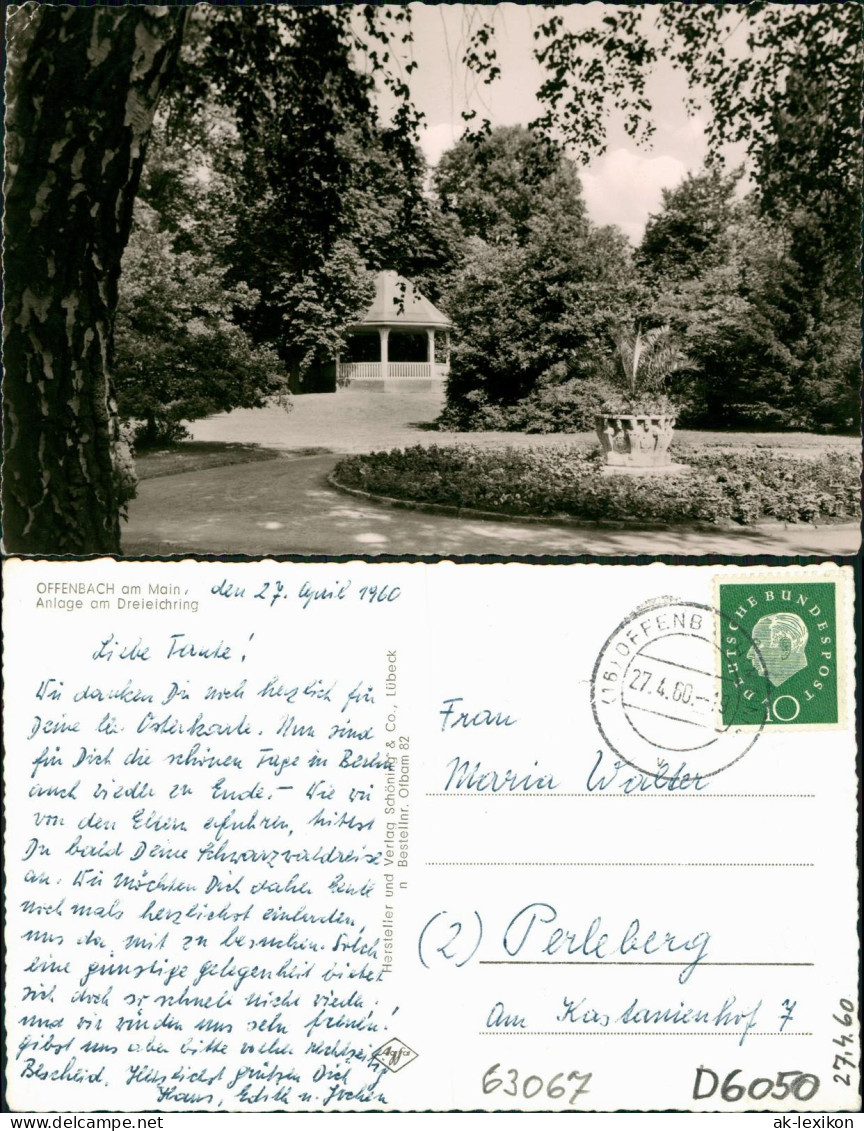 OFFENBACH am Main,
Anlage am Dreieichring
den 27. April 1960
Liebe Tante!
Wir danken Dir noch herzlich für
Deine lb. Osterkarte. Nun sind
für Dich die schönen Tage in Berlin
auch wieder zu Ende. – Wie wir
von den Eltern erfuhren, trittst
Du bald Deine Schwarzwaldreise
an. Wir möchten Dich daher heute
nochmals herzlichst einladen,
uns da mit zu besuchen. Solch
eine günstige Gelegenheit bietet
sich doch so schnell nicht wieder.
und wir würden uns sehr freuen!
gibst uns aber bitte vorher rechtzeitig
Bescheid. Herzlichst grüßen Dich
Hans, Edith u. Jochen
Hersteller und Verlag Schöning & Co., Lübeck
n Bestellnr. Ofbam 82
Agfa
(16) OFFENB
27.4.60.-19
DEUTSCHE BUNDESPOST
10
Frau
Maria Walter
(2) Perleberg
Am Kastanienhof 7
63067
D6050
27.4.60
www.delcampe.net
ak-lexikon